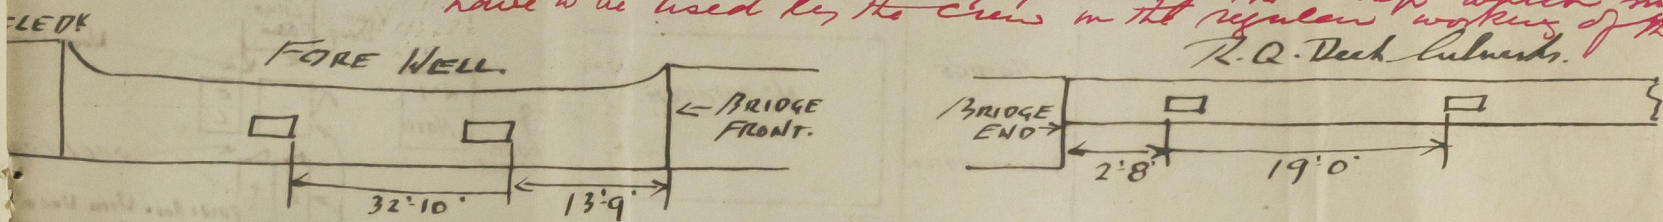 have to be used by the crew in the regular working of th
FORE WELL.
BRIDGE
FRONT.
32'.10"
13'.9"
R.Q. Deck Bulwarks.
BRIDGE
END
2'.8"
19'.0"